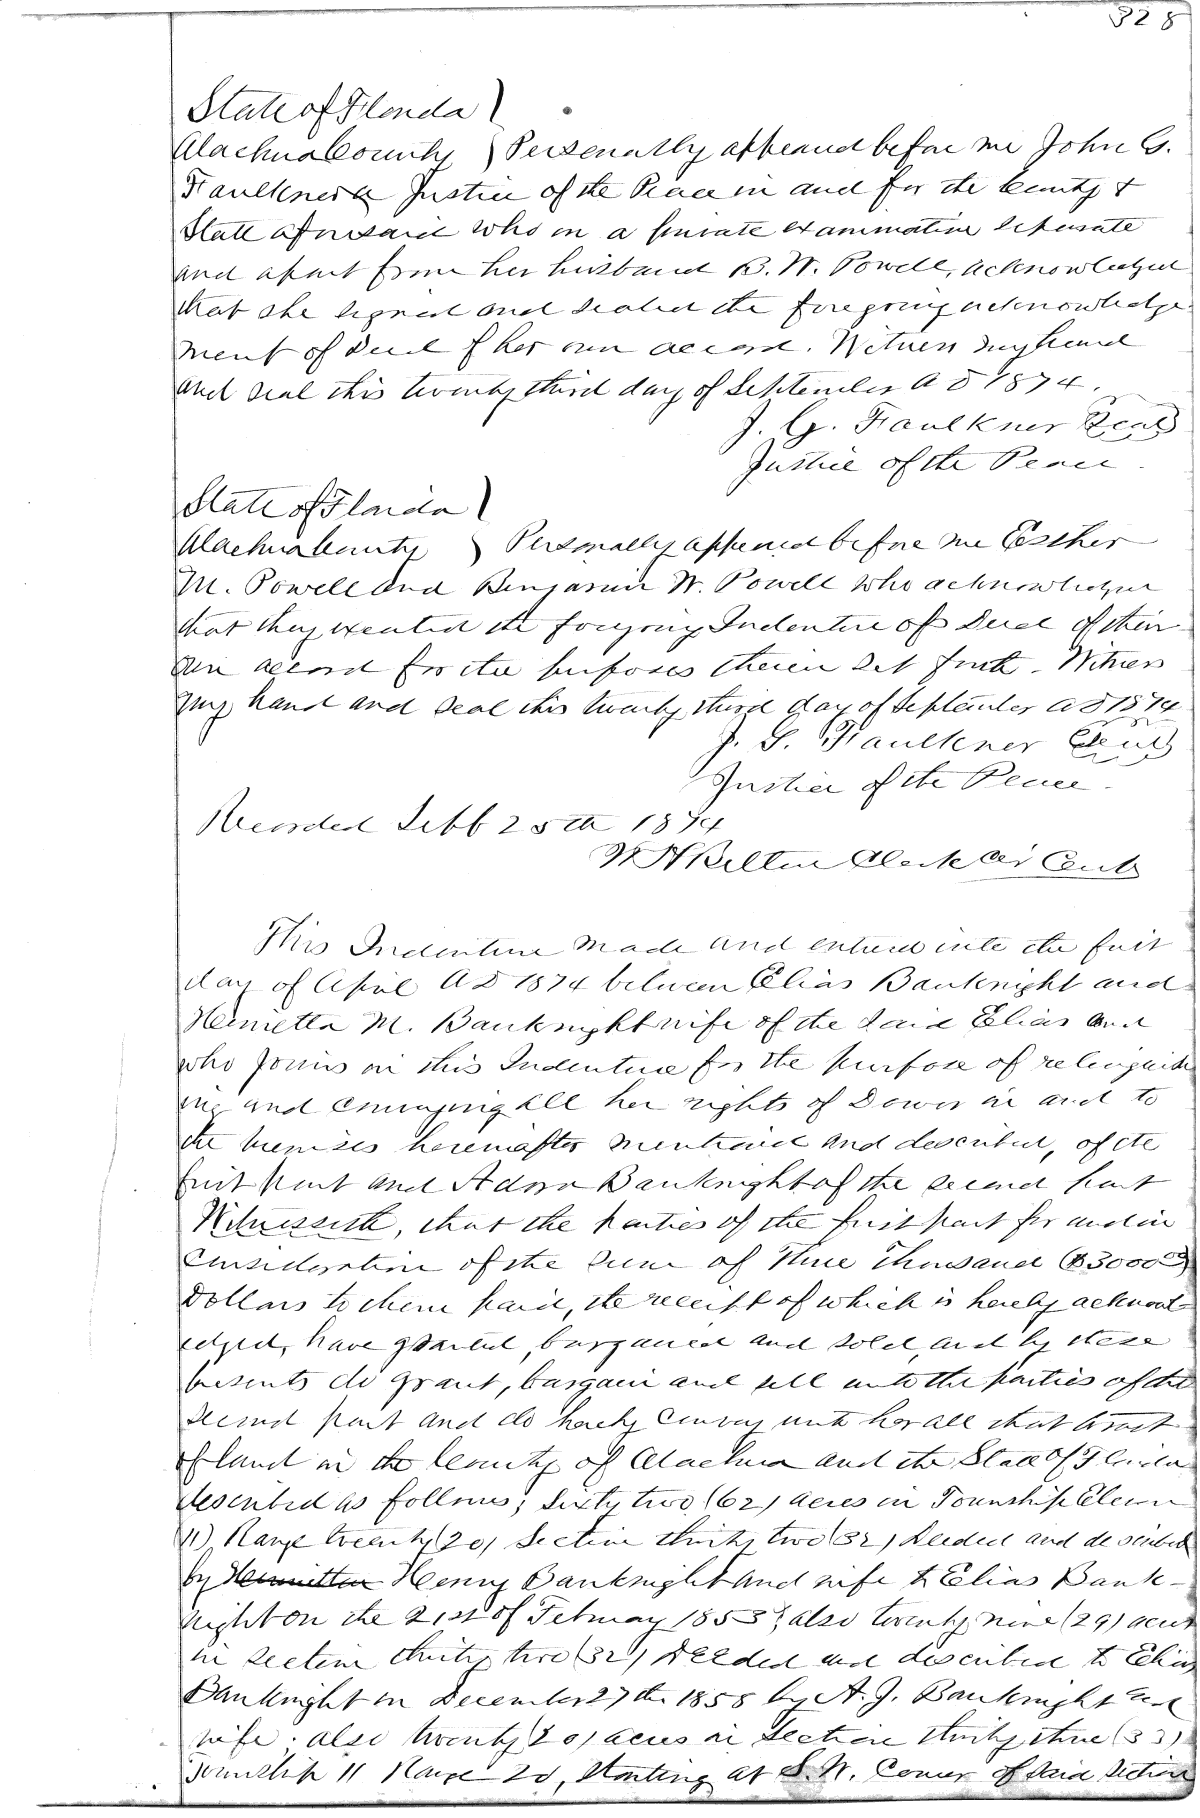 328
State of Florida }
Alachua County } Personally appeared before me John G.
Faulkner a Justice of the Peace in and for the County &
State aforesaid who on a private examination separate
and apart from her husband B. W. Powell, acknowledged
that she signed and sealed the foregoing acknowledge
ment of Deed of her own accord. Witness my hand
and seal this twenty third day of September A D 1874.
J. G. Faulkner Seal
Justice of the Peace.
State of Florida }
Alachua County } Personally appeared before me Esther
M. Powell and Benjamin W. Powell who acknowledged
that they executed the foregoing Indenture of Deed of their
own accord for the purposes therein set forth. Witness
my hand and seal this twenty third day of September A D 1874
J. G. Faulkner Seal
Justice of the Peace.
Recorded Sept 25th 1874
W H Belton Clerk Cir Court
This Indenture made and entered into the first
day of April A D 1874 between Elias Bauknight and
Henrietta M. Bauknight wife of the said Elias and
who joins in this Indenture for the purpose of relinquish
ing and conveying all her rights of Dower in and to
the premises hereinafter mentioned and described, of the
first part and Bauknight of the second part
Witnesseth, that the parties of the first part for and in
consideration of the sum of Three Thousand ($3000.00)
Dollars to them paid, the receipt of which is hereby acknowl
edged, have granted, bargained and sold, and by these
presents do grant, bargain and sell unto the parties of the
second part and do hereby convey unto her all that tract
of land in the County of Alachua and the State of Florida
described as follows; Sixty two (62) acres in Township Eleven
(11) Range twenty (20) Section thirty two (32) Deeded and described
by Henrietta Henry Bauknight and wife to Elias Bauk-
night on the 21st of February 1853; also twenty nine (29) acres
in section thirty two (32) Deeded and described to Elias
Bauknight on December 27th 1858 by A. J. Bauknight and
wife; also twenty (20) acres in Section thirty three (33)
Township 11 Range 20, Starting at S.W. Corner of said Section